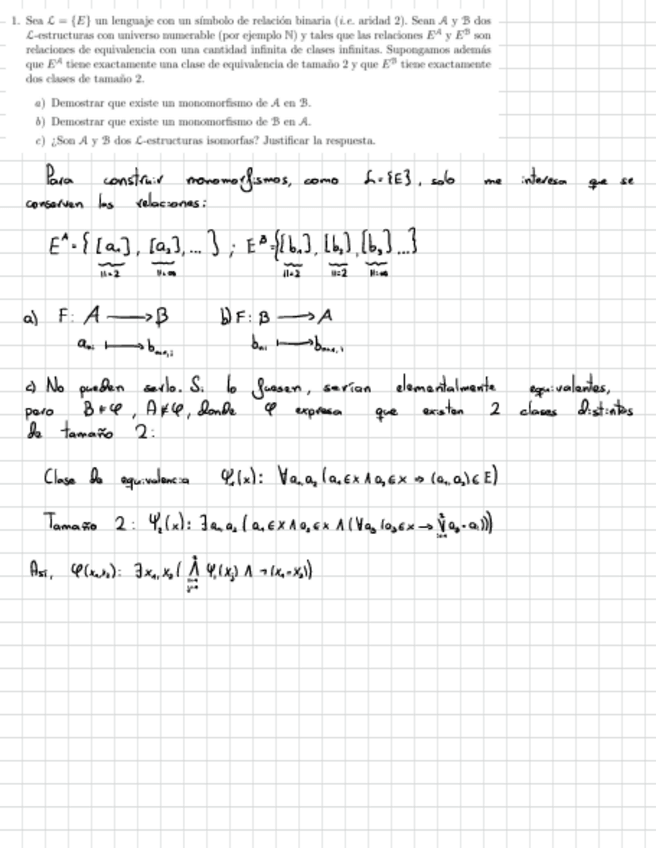 1. Sea ℒ = {E} un lenguaje con un símbolo de relación binaria (i.e. aridad 2). Sean 𝒜 y ℬ dos
ℒ-estructuras con universo numerable (por ejemplo ℕ) y tales que las relaciones E^𝒜 y E^ℬ son
relaciones de equivalencia con una cantidad infinita de clases infinitas. Supongamos además
que E^𝒜 tiene exactamente una clase de equivalencia de tamaño 2 y que E^ℬ tiene exactamente
dos clases de tamaño 2.
a) Demostrar que existe un monomorfismo de 𝒜 en ℬ.
b) Demostrar que existe un monomorfismo de ℬ en 𝒜.
c) ¿Son 𝒜 y ℬ dos ℒ-estructuras isomorfas? Justificar la respuesta.
Para construir monomorfismos, como L={E}, solo me interesa que se
conserven las relaciones:
E^A = {[a₁], [a₂], ... } ; E^B = {[b₁], [b₂], [b₃] ...}
||=2 ||=∞ ||=2 ||=2 ||=∞
a) F: A ⟶ B b) F: B ⟶ A
c) No pueden serlo. Si lo fuesen, serían elementalmente equivalentes,
pero B⊨φ, A⊭φ, donde φ expresa que existen 2 clases distintas
de tamaño 2:
Clase de equivalencia φ₁(x): ∀a₁a₂ (a₁∈x ∧ a₂∈x → (a₁,a₂)∈E)
Tamaño 2: φ₂(x): ∃a₁a₂ (a₁∈x ∧ a₂∈x ∧ (∀a₃ (a₃∈x →
Así, φ(x₁,x₂): ∃x₁,x₂ ( ⋀ φᵢ(xⱼ) ∧ ¬(x₁=x₂))